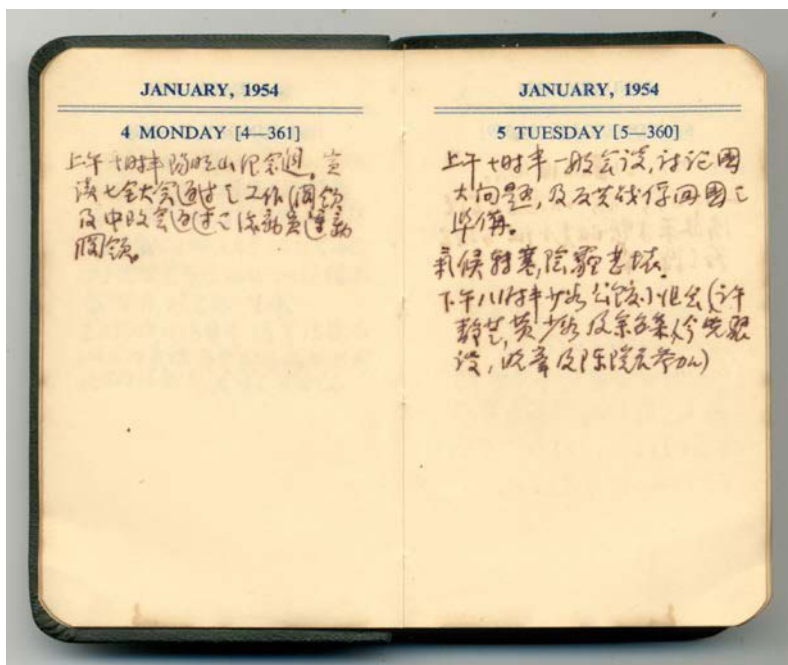 JANUARY, 1954
4 MONDAY [4—361]
上午十时半陽明山纪念週。宣
读七全大会通过之工作纲领
及中政会通过之总动员運動
纲领。
JANUARY, 1954
5 TUESDAY [5—360]
上午十时半一般会议,讨论國
大问题,及反共战俘回國之
準備。
氣候轉寒,陰霾甚
下午八时半少谷公館小组会(许
静芝,黄少谷及余各条人今先聚
谈,晓峯及陈院长参加)